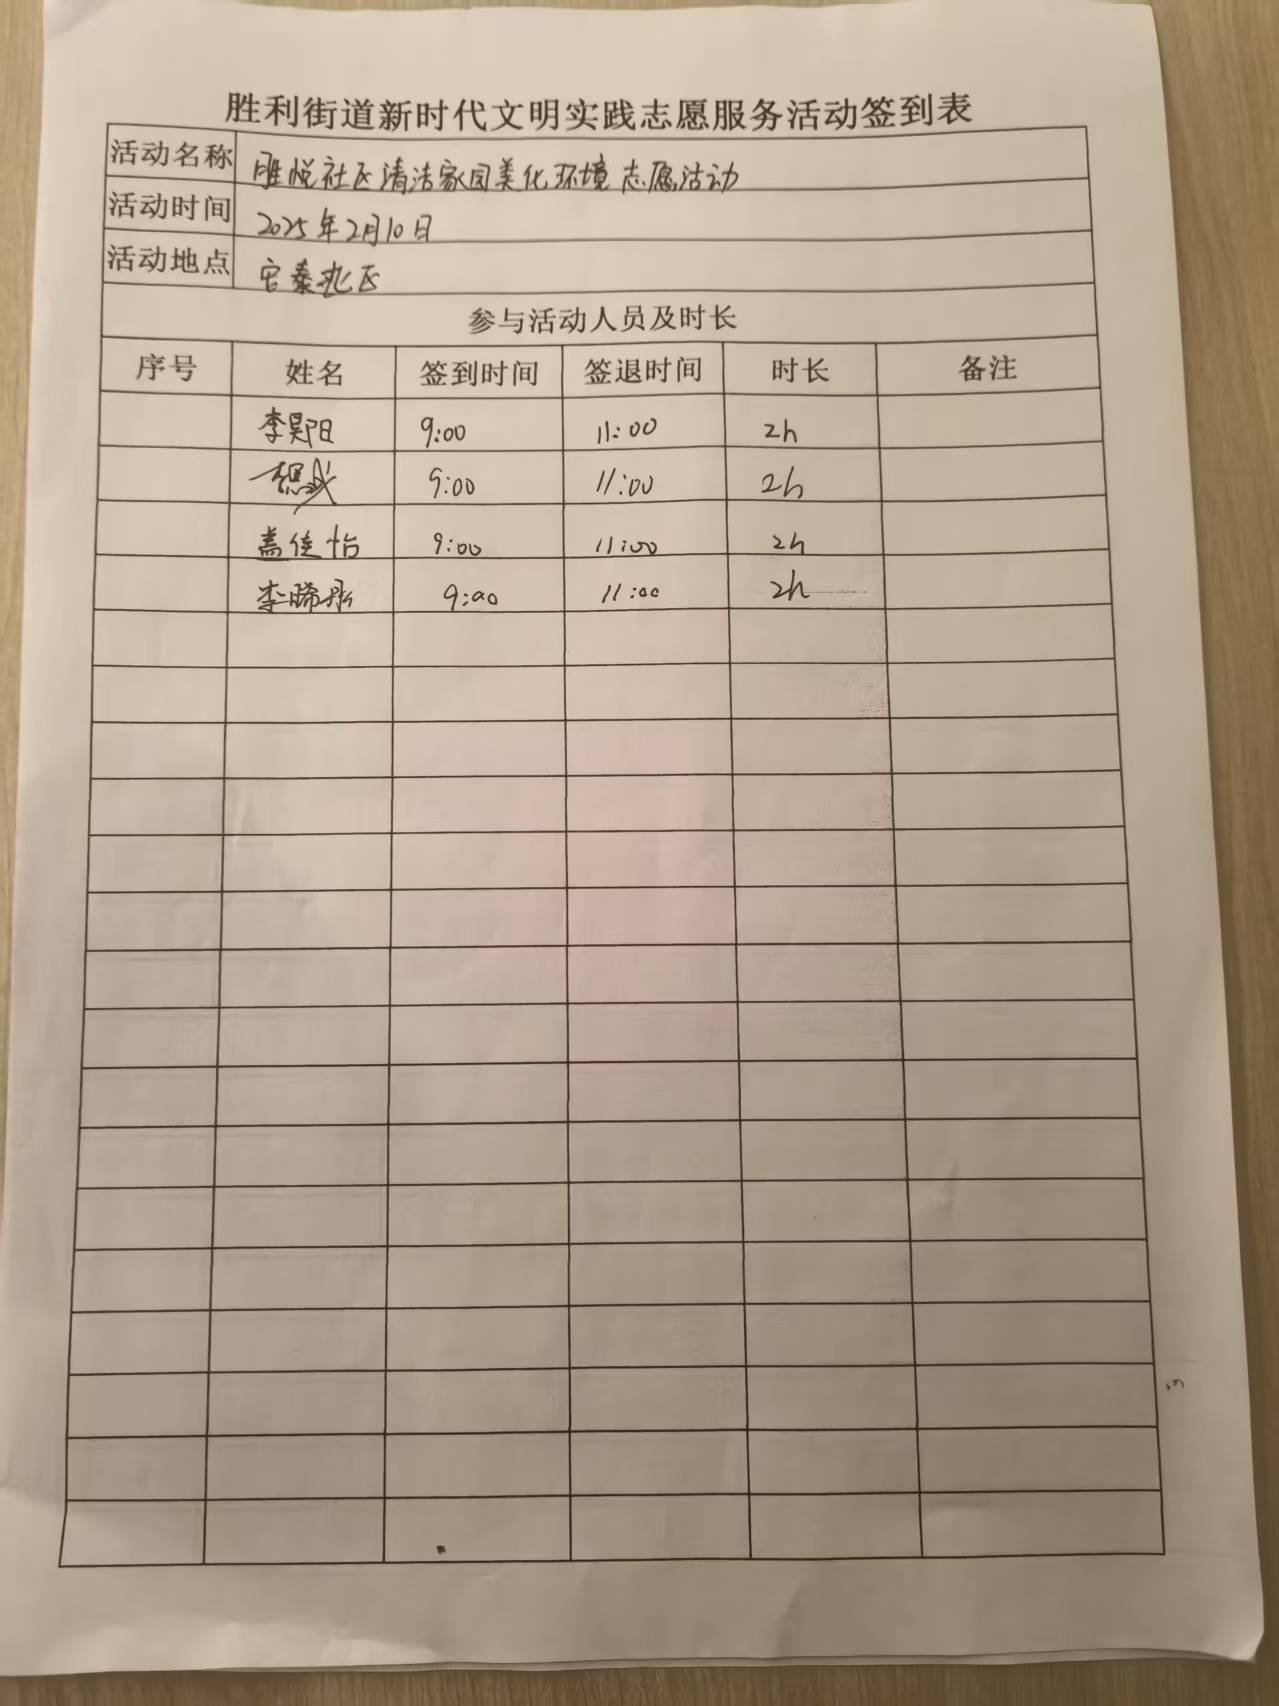 胜利街道新时代文明实践志愿服务活动签到表
活动名称 雅悦社区清洁家园美化环境志愿活动
活动时间 2025年2月10日
活动地点 宏泰北区
参与活动人员及时长
序号 姓名 签到时间 签退时间 时长 备注
李昊阳 9:00 11:00 2h
9:00 11:00 2h
盖佳怡 9:00 11:00 2h
李晞彤 9:00 11:00 2h